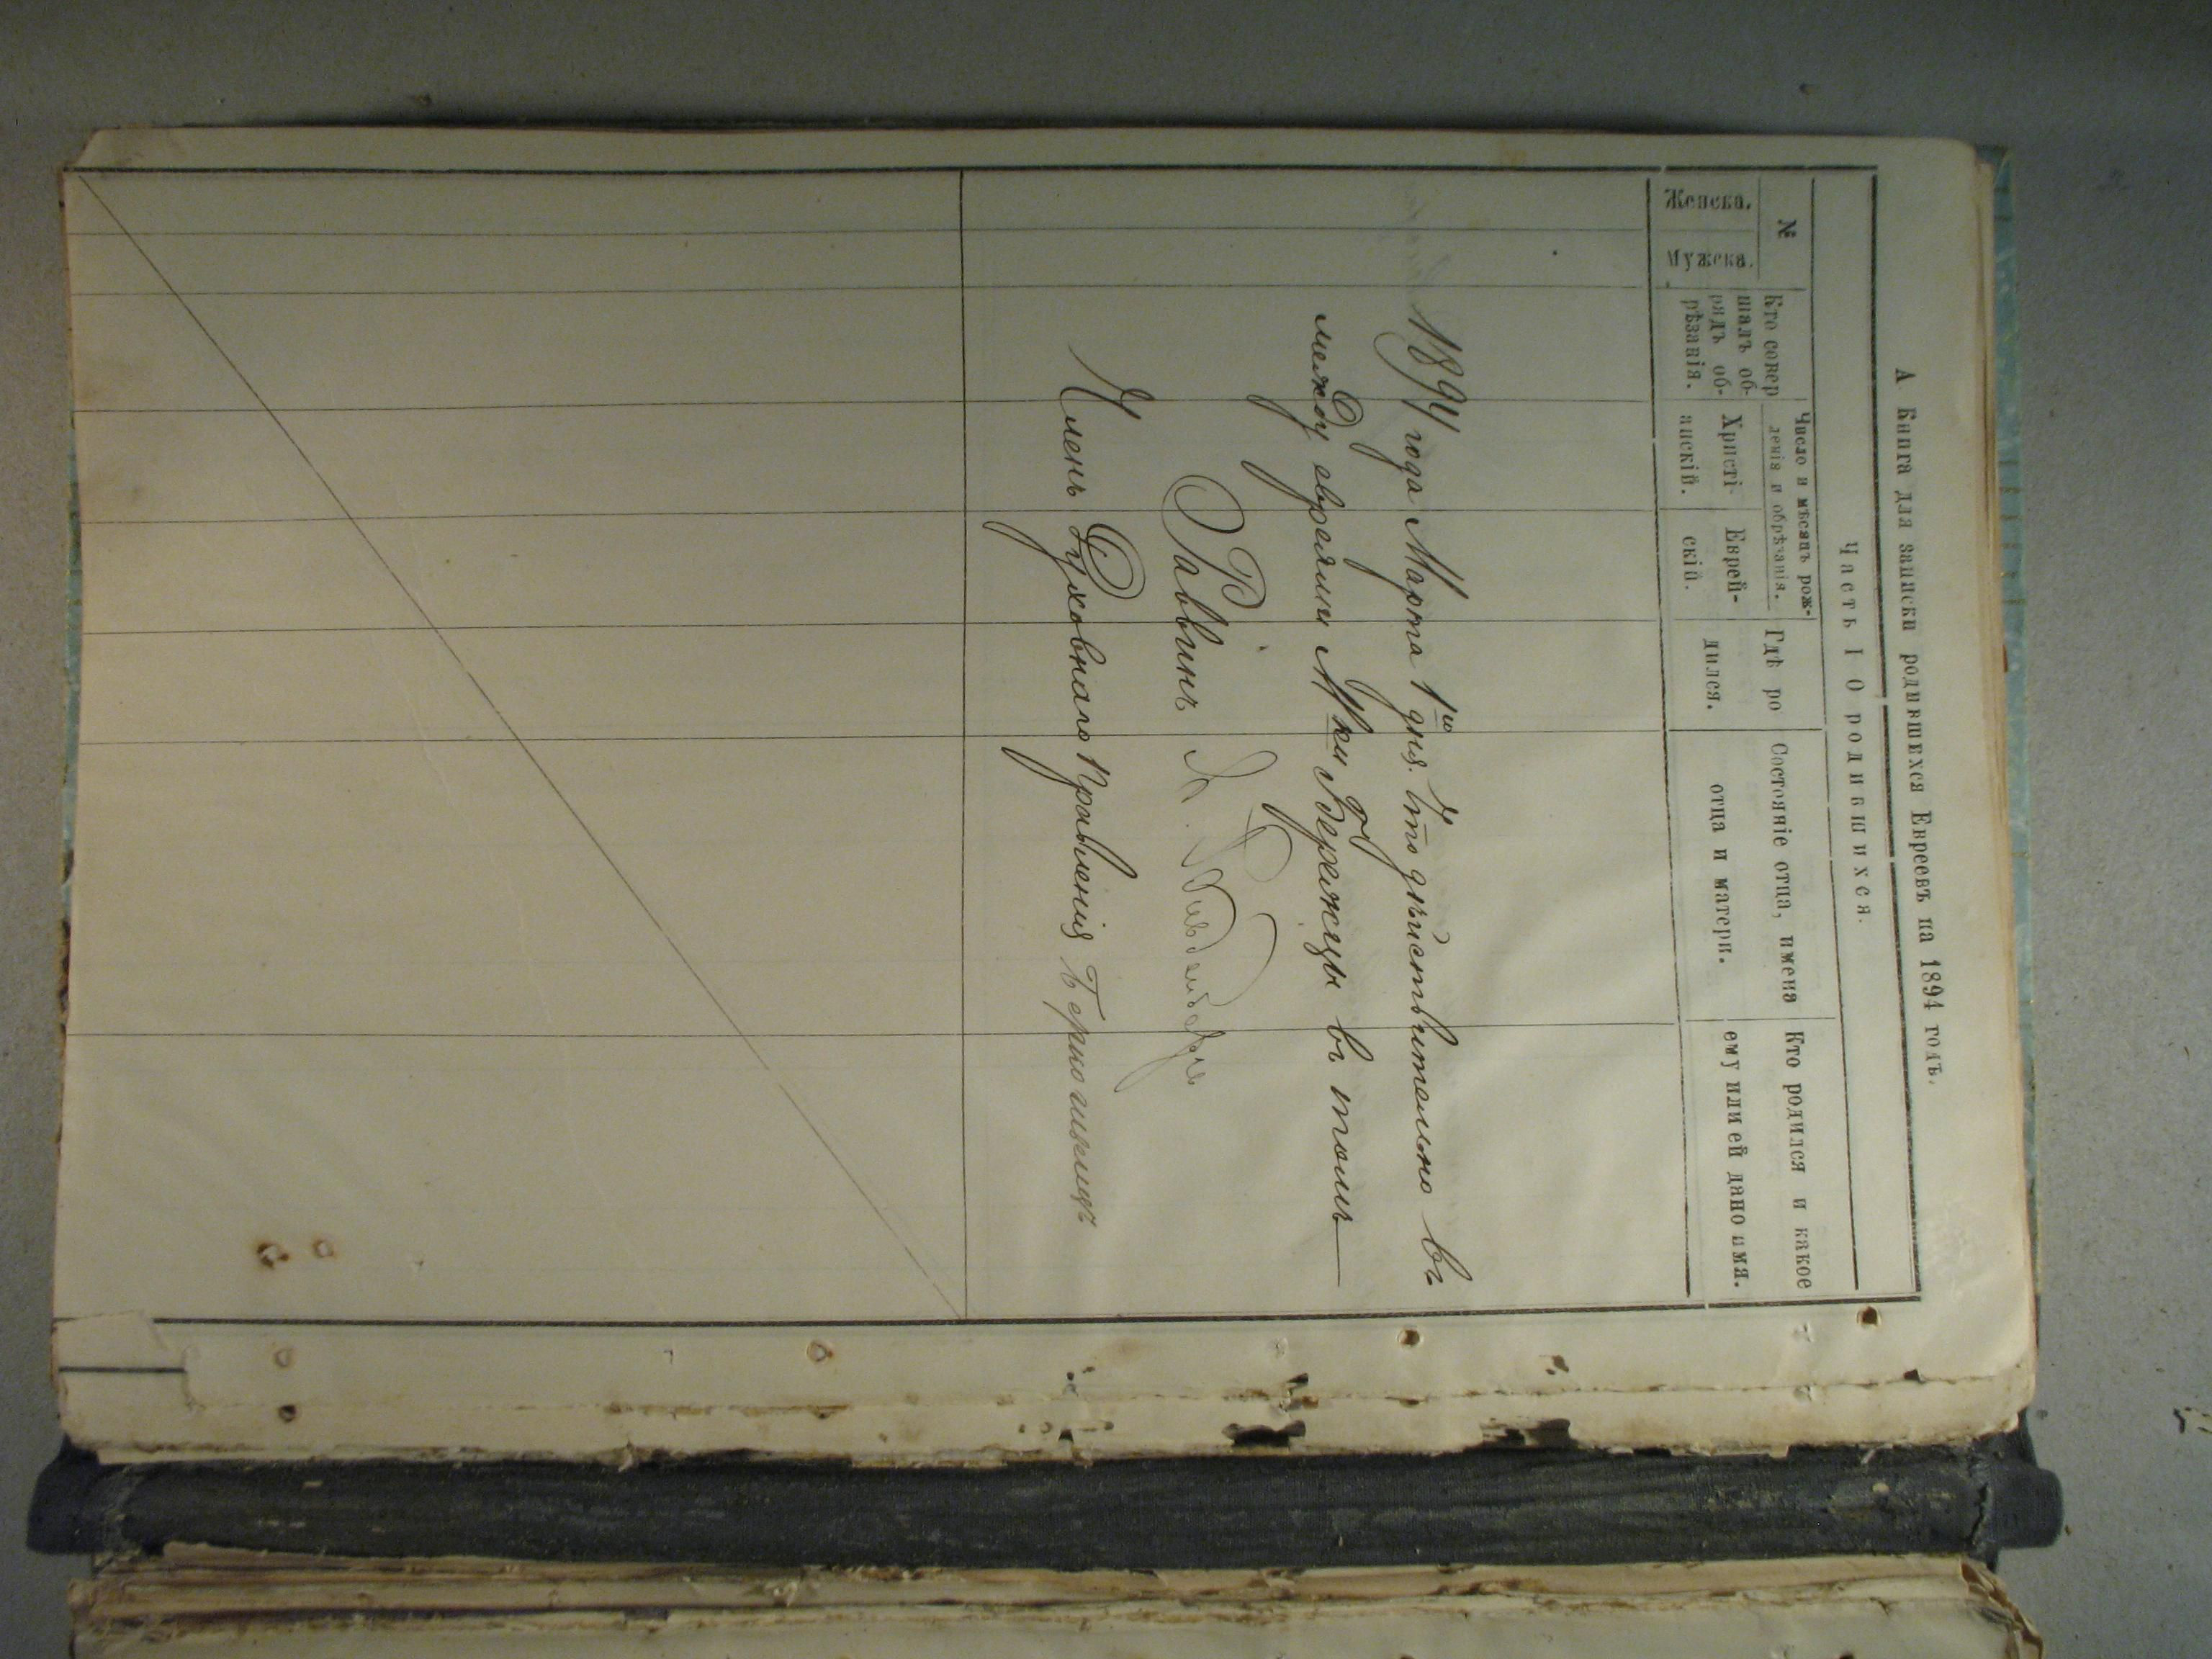 А Книга для записи родившихся Евреевъ на 1894 годъ.
Часть I О родившихся.
№
Женска.
Мужска.
Кто совер
шалъ об-
рядъ об-
рѣзанія.
Число и мѣсяцъ рож-
денія и обрѣзанія.
Христі-
анскій.
Еврей-
скій.
Гдѣ ро
дился.
Состояніе отца, имена
отца и матери.
Кто родился и какое
ему или ей дано имя.
1894 года Марта 1го дня. Что дѣйствительно въ
между евреями М ки Бережцы въ томъ
Раввинъ
Членъ Духовнаго Правленія